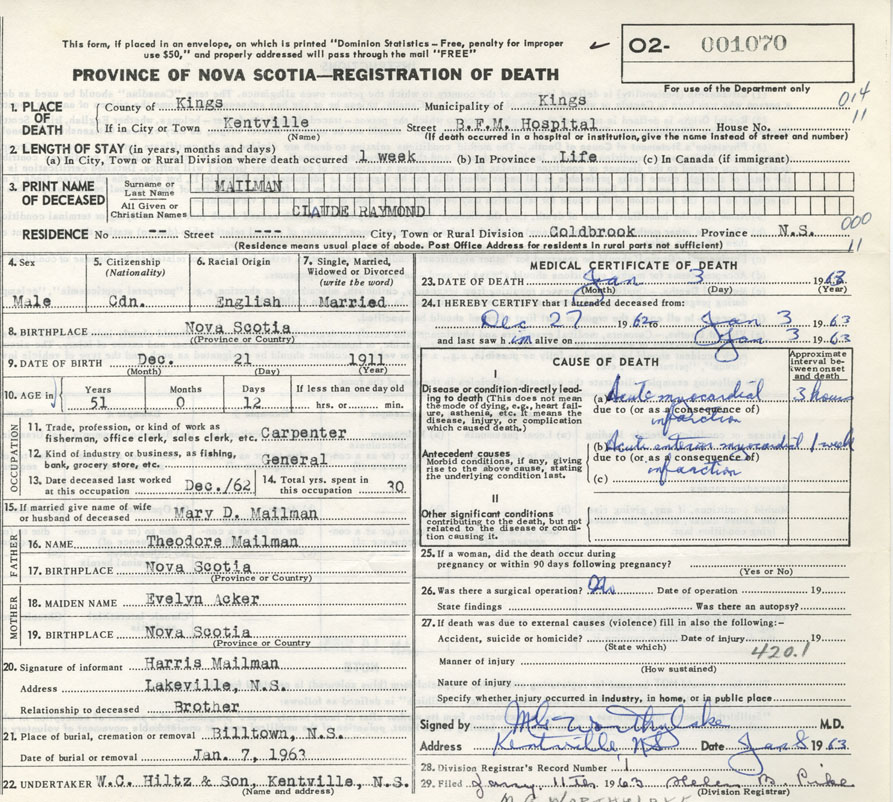 This form, if placed in an envelope, on which is printed "Dominion Statistics - Free, penalty for improper
use $50," and properly addressed will pass through the mail "FREE"
O2- 001070
PROVINCE OF NOVA SCOTIA—REGISTRATION OF DEATH
For use of the Department only
014
11
1. PLACE OF DEATH
County of Kings Municipality of Kings
If in City or Town Kentville Street B.F.M. Hospital House No.
(Name) (If death occurred in a hospital or institution, give the name instead of street and number)
2. LENGTH OF STAY (in years, months and days)
(a) In City, Town or Rural Division where death occurred 1 week (b) In Province Life (c) In Canada (if immigrant)
3. PRINT NAME OF DECEASED
Surname or Last Name MAILMAN
All Given or Christian Names CLAUDE RAYMOND
000
11
RESIDENCE No -- Street --- City, Town or Rural Division Coldbrook Province N.S.
(Residence means usual place of abode. Post Office Address for residents in rural parts not sufficient)
4. Sex
Male
5. Citizenship
(Nationality)
Cdn.
6. Racial Origin
English
7. Single, Married,
Widowed or Divorced
(write the word)
Married
8. BIRTHPLACE Nova Scotia
(Province or Country)
9. DATE OF BIRTH Dec. 21 1911
(Month) (Day) (Year)
10. AGE in
Years Months Days If less than one day old
51 0 12 hrs. or min.
OCCUPATION
11. Trade, profession, or kind of work as
fisherman, office clerk, sales clerk, etc. Carpenter
12. Kind of industry or business, as fishing,
bank, grocery store, etc. General
13. Date deceased last worked
at this occupation Dec./62
14. Total yrs. spent in
this occupation 30
15. If married give name of wife
or husband of deceased Mary D. Mailman
FATHER
16. NAME Theodore Mailman
17. BIRTHPLACE Nova Scotia
(Province or Country)
MOTHER
18. MAIDEN NAME Evelyn Acker
19. BIRTHPLACE Nova Scotia
(Province or Country
20. Signature of informant Harris Mailman
Address Lakeville, N.S.
Relationship to deceased Brother
21. Place of burial, cremation or removal Billtown, N.S.
Date of burial or removal Jan. 7, 1963
22. UNDERTAKER W.C. Hiltz & Son, Kentville, N.S.
(Name and address)
MEDICAL CERTIFICATE OF DEATH
23. DATE OF DEATH Jan 3 1963
(Month) (Day) (Year)
24. I HEREBY CERTIFY that I attended deceased from:
Dec 27 1962 to Jan 3 1963
and last saw him alive on Jan 3 1963
CAUSE OF DEATH
Approximate
interval be-
tween onset
and death
I
Disease or condition directly lead-
ing to death (This does not
mean the mode of dying, e.g., heart fail-
ure, asthenia, etc. It means the
disease, injury, or complication
which caused death.)
(a) Acute myocardial 3 hours
due to (or as a consequence of)
infarction
Antecedent causes
Morbid conditions, if any, giving
rise to the above cause, stating
the underlying condition last.
(b) Acute anterior myocardial 1 week
due to (or as a consequence of)
infarction
(c)
II
Other significant conditions
contributing to the death, but not
related to the disease or condi-
tion causing it.
25. If a woman, did the death occur during
pregnancy or within 90 days following pregnancy?
(Yes or No)
26. Was there a surgical operation? No Date of operation 19
State findings Was there an autopsy?
27. If death was due to external causes (violence) fill in also the following:-
Accident, suicide or homicide? Date of injury 19
(State which) 420.1
Manner of injury
(How sustained)
Nature of injury
Specify whether injury occurred in industry, in home, or in public place
Signed by M.D.
Address Kentville NS Date Jan 8 1963
28. Division Registrar's Record Number 1
29. Filed 1963 Helen B.
(Division Registrar)